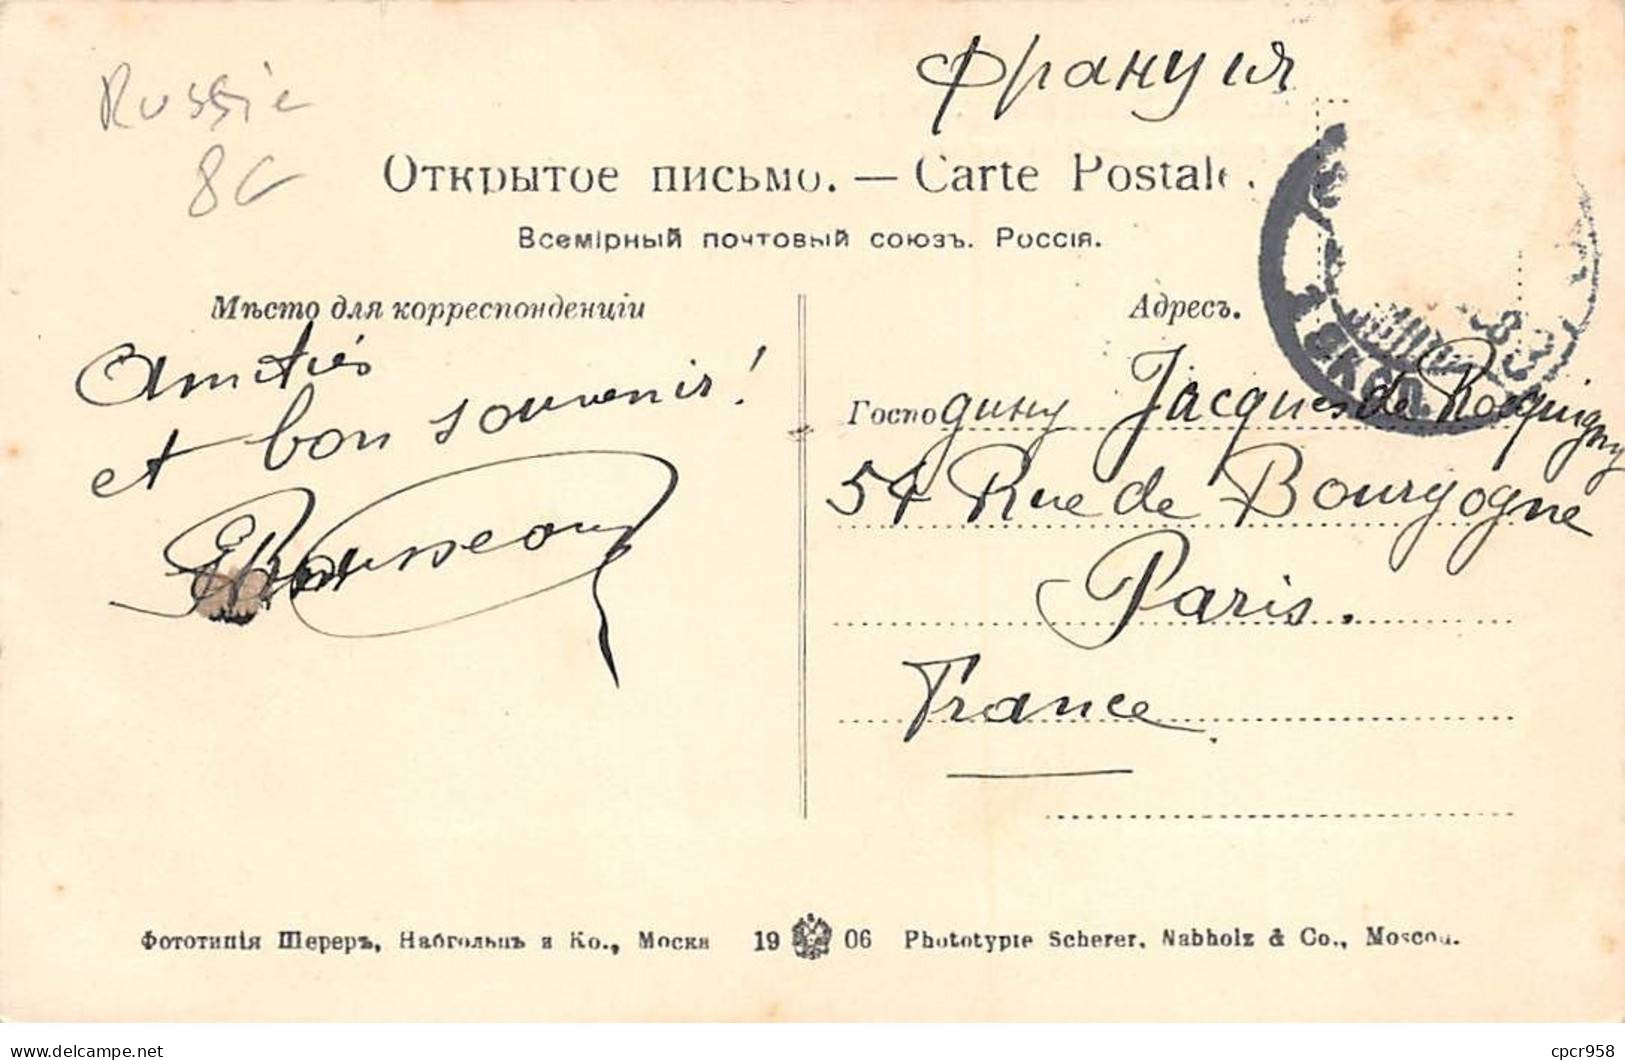 Франция
Russie
8€
Открытое письмо. — Carte Postale.
Всемірный почтовый союзъ. Россія.
Мѣсто для корреспонденціи
Адресъ.
Amitiés
et bon souvenir!
Господину Jacques de Rocquigny
54 Rue de Bourgogne
Paris.
France.
Фототипія Шереръ, Набгольцъ и Ко., Москва 19 06 Phototypie Scherer, Nabholz & Co., Moscou.
delcampe.net
cpcr958